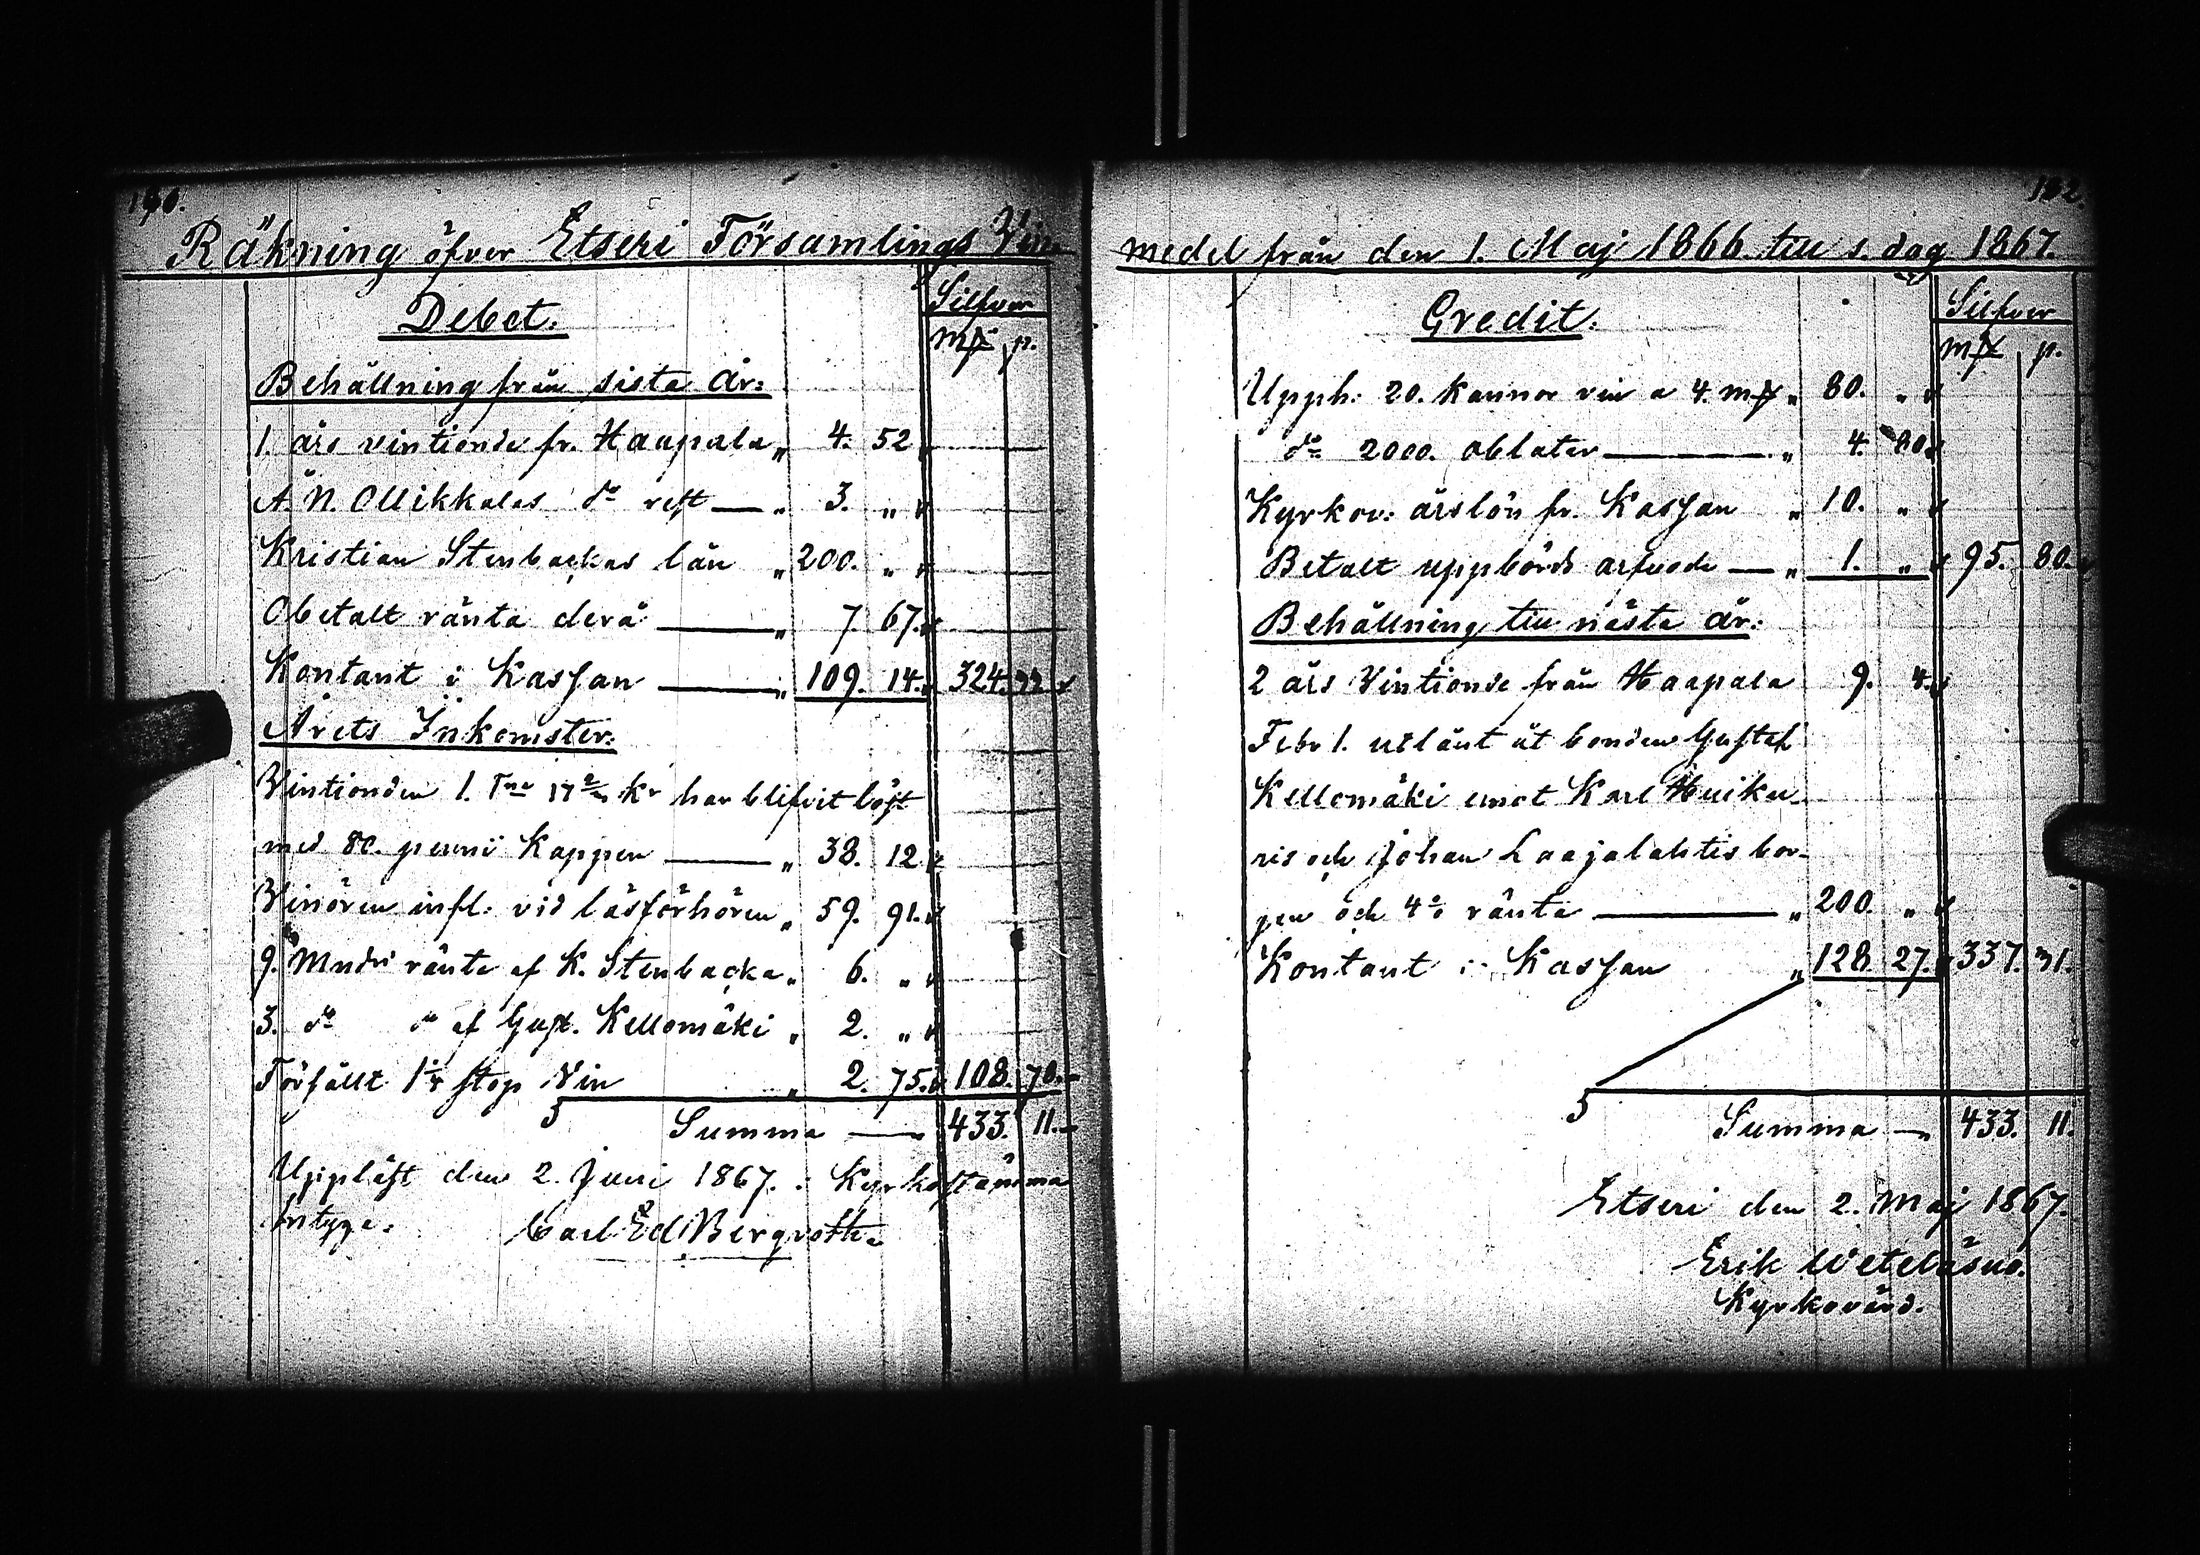 Räkning öfver Etseri Församlings Vin
Debet.
Silfver
mk p.
Behållning från sista år:
1. års vintionde fr. Haapala „ 4. 52
A. N. Ollikkalas do rest — „ 3. „
Kristian Stenbackas lån „ 200. „
Obetalt ränta derå — „ 7. 67.
Kontant i Kassan — „ 109. 14. 324. 33
Årets Inkomster:
Vintionden 1. Tna kr har blifvit löst
med 80. penni Kappen — „ 38. 12
Vinören infl: vid läsförhören „ 59. 91.
9. Mndrs ränta af K. Stenbacka „ 6. „
3. do do af Gust. Kellomäki „ 2. „
Försåldt stop Vin „ 2. 75. 108. 78.
Summa — 433. 11.
Uppläst den 2. Juni 1867. i Kyrkostämma
Intyga.
Carl Ed. Bergroth.
182.
medel från den 1. Maj 1866. till s. dag 1867.
Credit.
Silfver
mk p.
Upph: 20. Kannor vin a 4. mk „ 80. „
do 2000. oblater — „ 4. 80
Kyrkov: årslön fr. Kassan „ 10. „
Betalt uppbörds arfvode — „ 1. „ 95. 80.
Behållning till nästa år:
2 års Vintionde från Haapala 9. 4.
Febr 1. utlånt åt bonden Gustaf
Kellomäki emot Karl Huiku-
ris och Johan Laajalahtis bor-
gen och 4% ränta — „ 200. „
Kontant i Kassan „ 128 27. 337. 31.
Summa — 433. 11.
Etseri den 2. Maj 1867.
Erik Weteläsuo.
Kyrkovärd.